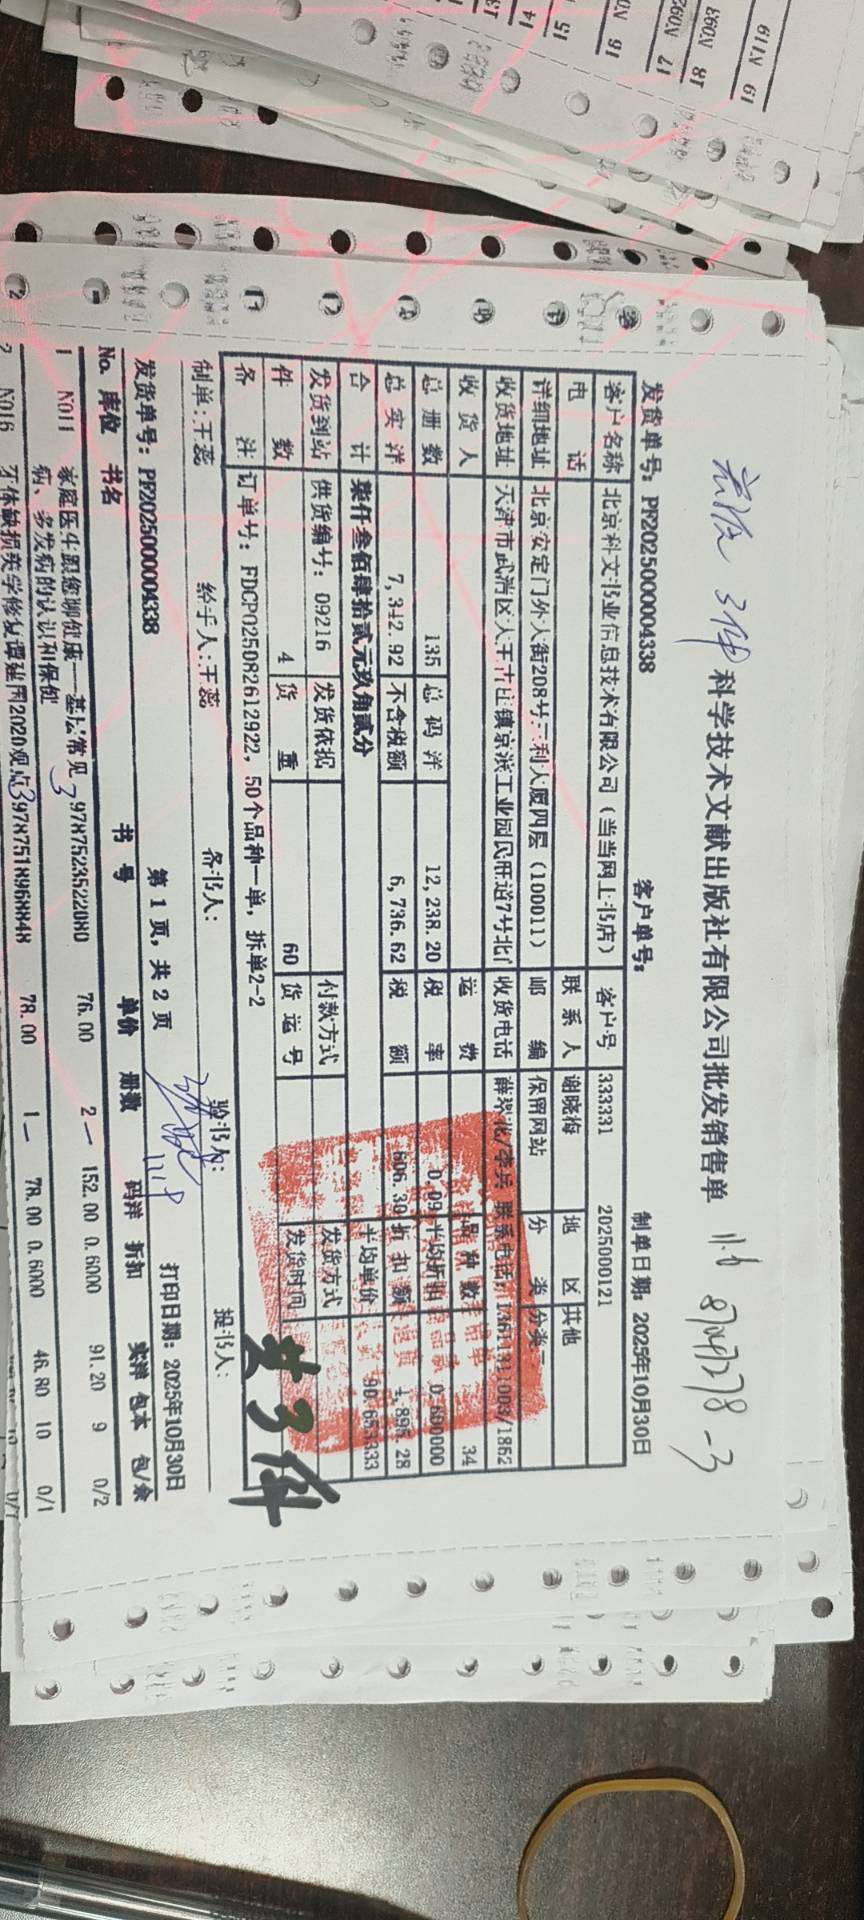 科学技术文献出版社有限公司批发销售单 11.6 87047278-3
发货单号: PF2025000004338 客户单号: 制单日期: 2025年10月30日
客户名称 北京科文书业信息技术有限公司（当当网上书店） 客户号 333331 2025000121
电话 联系人 谢晓梅 地区 其他
详细地址 北京安定门外大街208号三利大厦四层（100011） 邮编 保留网站 分类 分类二
收货地址 天津市武清区大王古庄镇京滨工业园民旺道7号北门 收货电话
收货人 运费 品种数 34
总册数 135 总码洋 12,238.20 税率 0.09 平均折扣 0.600000
总实洋 7,342.92 不含税额 6,736.62 税额 606.30 折扣额 4,895.28
合计 柒仟叁佰肆拾贰元玖角贰分 平均单价 90.653333
发货到站 供货编号: 09216 发货依据 付款方式 发货方式
件数 4 货重 60 货运号 发货时间
备注 订单号: FDCP025082612922, 50个品种一单, 拆单2-2
制单:王蕊 经手人:王蕊 备书人: 验书人: 提书人:
发货单号: PF2025000004338 第 1 页, 共 2 页 打印日期: 2025年10月30日
No. 库位 书名 书号 单价 册数 码洋 折扣 实洋 包本 包/余
1 N011 家庭医生跟您聊健康——基层常见 9787523522080 76.00 2 152.00 0.6000 91.20 9 0/2
病、多发病的认识和保健
2 N016 牙体缺损美学修复谭建国2020观点 9787518968848 78.00 1 78.00 0.6000 46.80 10 0/1